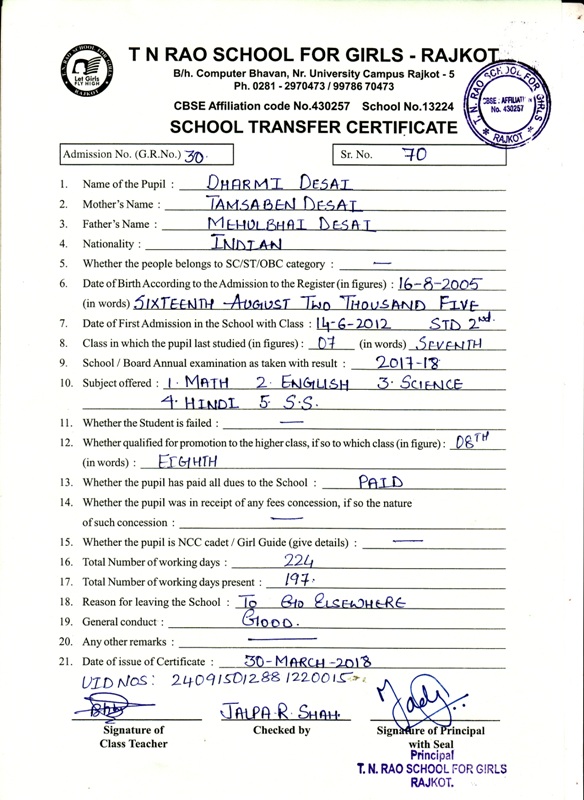 T. N. RAO SCHOOL FOR GIRLS
Let Girls
FLY HIGH
RAJKOT
T N RAO SCHOOL FOR GIRLS - RAJKOT
B/h. Computer Bhavan, Nr. University Campus Rajkot - 5
Ph. 0281 - 2970473 / 99786 70473
CBSE Affiliation code No.430257 School No.13224
SCHOOL TRANSFER CERTIFICATE
T. N. RAO SCHOOL FOR GIRLS
CBSE : AFFILIATI
No. 430257
RAJKOT
Admission No. (G.R.No.) 30. Sr. No. 70
1. Name of the Pupil : DHARMI DESAI
2. Mother's Name : TAMSABEN DESAI
3. Father's Name : MEHULBHAI DESAI
4. Nationality : INDIAN
5. Whether the people belongs to SC/ST/OBC category : —
6. Date of Birth According to the Admission to the Register (in figures) : 16-8-2005
(in words) SIXTEENTH - AUGUST TWO THOUSAND FIVE
7. Date of First Admission in the School with Class : 14-6-2012 STD 2nd.
8. Class in which the pupil last studied (in figures) : 07 (in words) SEVENTH
9. School / Board Annual examination as taken with result : 2017-18
10. Subject offered : 1. MATH 2. ENGLISH 3. SCIENCE
4. HINDI 5. S.S.
11. Whether the Student is failed : —
12. Whether qualified for promotion to the higher class, if so to which class (in figure) : 08TH
(in words) : EIGHTH
13. Whether the pupil has paid all dues to the School : PAID
14. Whether the pupil was in receipt of any fees concession, if so the nature
of such concession : —
15. Whether the pupil is NCC cadet / Girl Guide (give details) : —
16. Total Number of working days : 224
17. Total Number of working days present : 197.
18. Reason for leaving the School : TO GO ELSEWHERE
19. General conduct : GOOD.
20. Any other remarks : —
21. Date of issue of Certificate : 30-MARCH-2018
UID NOS: 240915012881220015
JALPA R. SHAH
Signature of Checked by Signature of Principal
Class Teacher with Seal
Principal
T. N. RAO SCHOOL FOR GIRLS
RAJKOT.